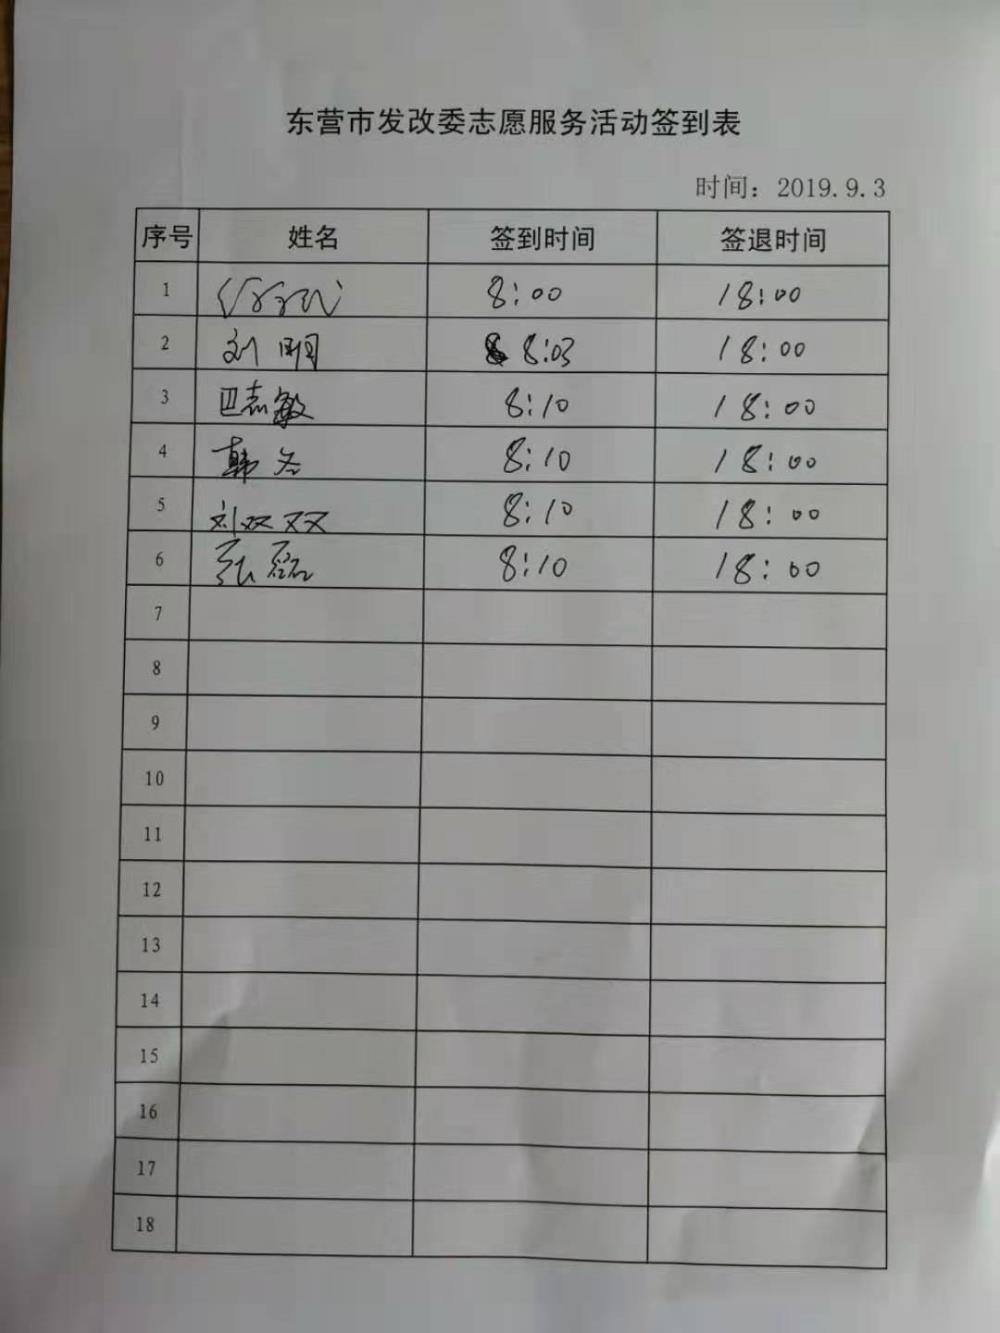 东营市发改委志愿服务活动签到表
时间：2019.9.3
序号 姓名 签到时间 签退时间
1 8:00 18:00
2 刘 8:03 18:00
3 巴志敏 8:10 18:00
4 韩冬 8:10 18:00
5 刘双双 8:10 18:00
6 张磊 8:10 18:00
7
8
9
10
11
12
13
14
15
16
17
18